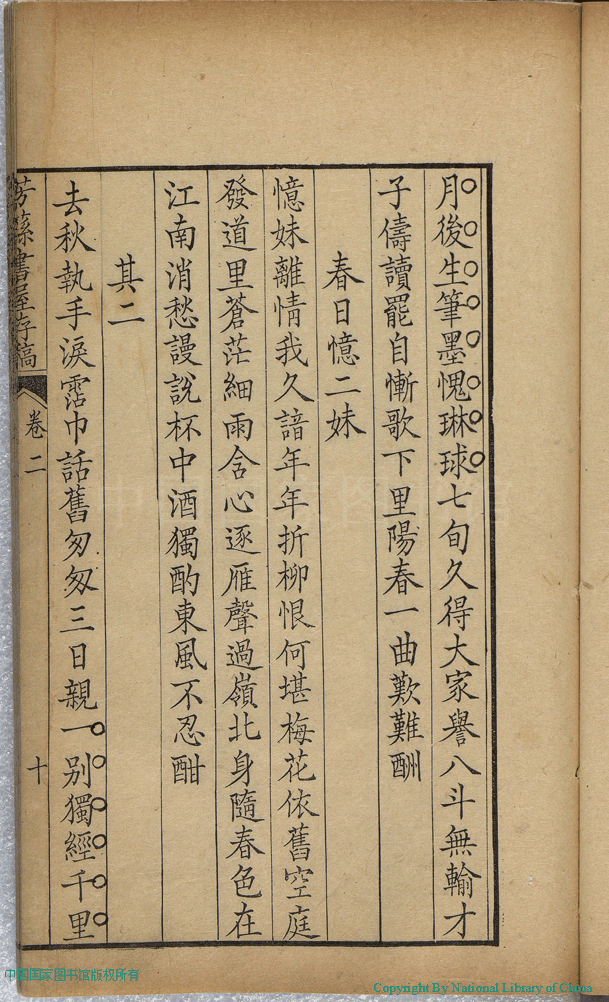 月後生筆墨愧琳球七旬久得大家譽八斗無輸才
子儔讀罷自慚歌下里陽春一曲歎難酬
春日憶二妹
憶妹離情我久諳年年折柳恨何堪梅花依舊空庭
發道里蒼茫細雨含心逐雁聲過嶺北身隨春色在
江南消愁謾說杯中酒獨酌東風不忍酣
其二
去秋執手淚霑巾話舊匆匆三日親一別獨經千里
書屋存稿
卷二
十
中国国家图书馆版权所有
Copyright By National Library of China